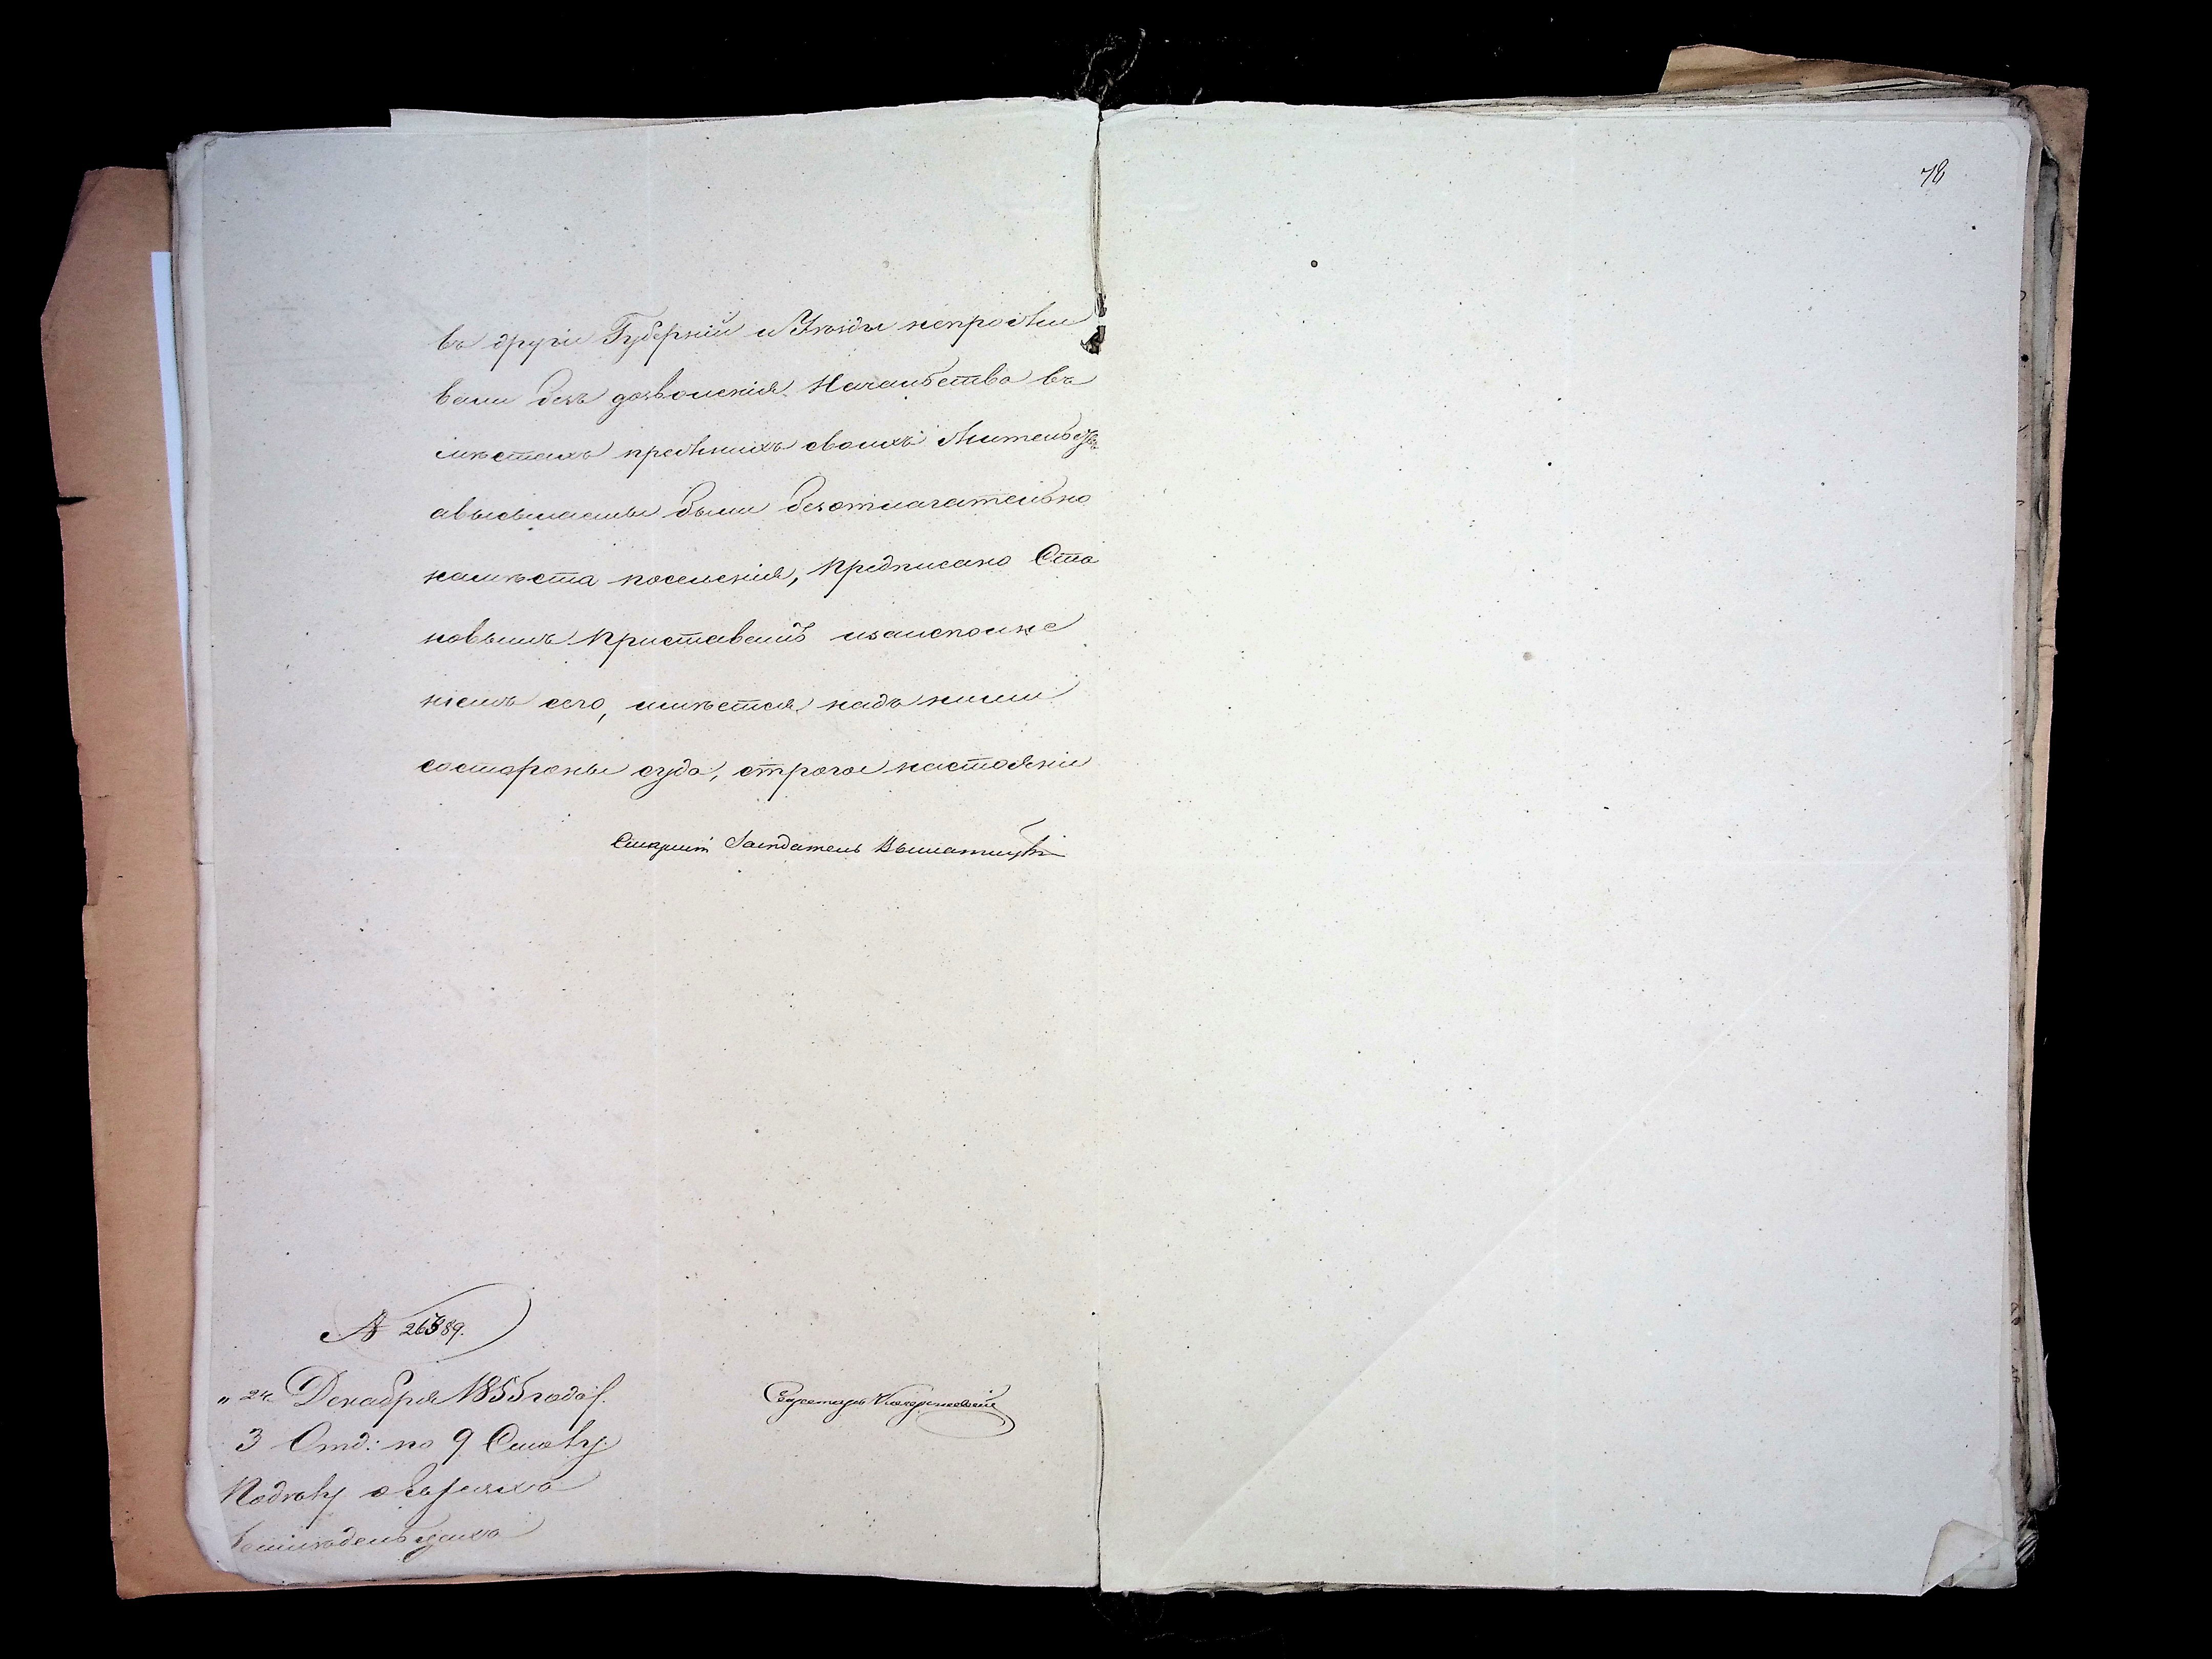 78
въ другіе Губерніи и Уѣзды непрожи
вали безъ дозволенія Началь­ства въ
мѣстахъ прежнихъ своихъ Жительствъ
авысылаемы были безотлагательно
намѣста поселенія, предписано Ста
новымъ Приставамъ изаисполне
ніемъ сего, имѣется надъ ними
состороны суда, строгое настояніе
Засѣдатель
№ 26389.
"24" Декабря 1855 года
3 Отд: по 9 Столу.
Подѣлу о Евреяхъ
земледельцахъ
Секретарь